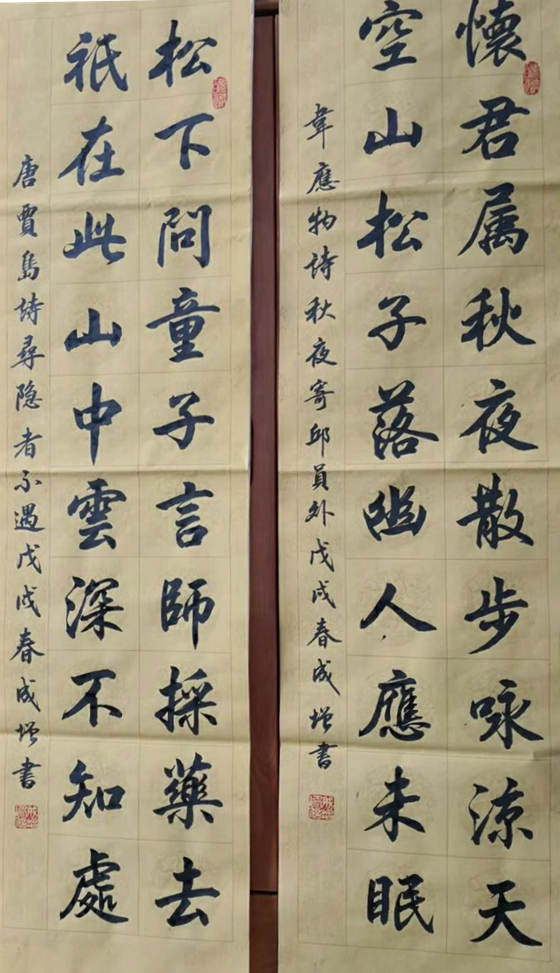 懷君属秋夜散步咏涼天
空山松子落幽人應未眠
韋應物詩秋夜寄邱員外戊戌春成增書
松下問童子言師採藥去
祇在此山中雲深不知處
唐賈島詩尋隐者不遇戊戌春成增書